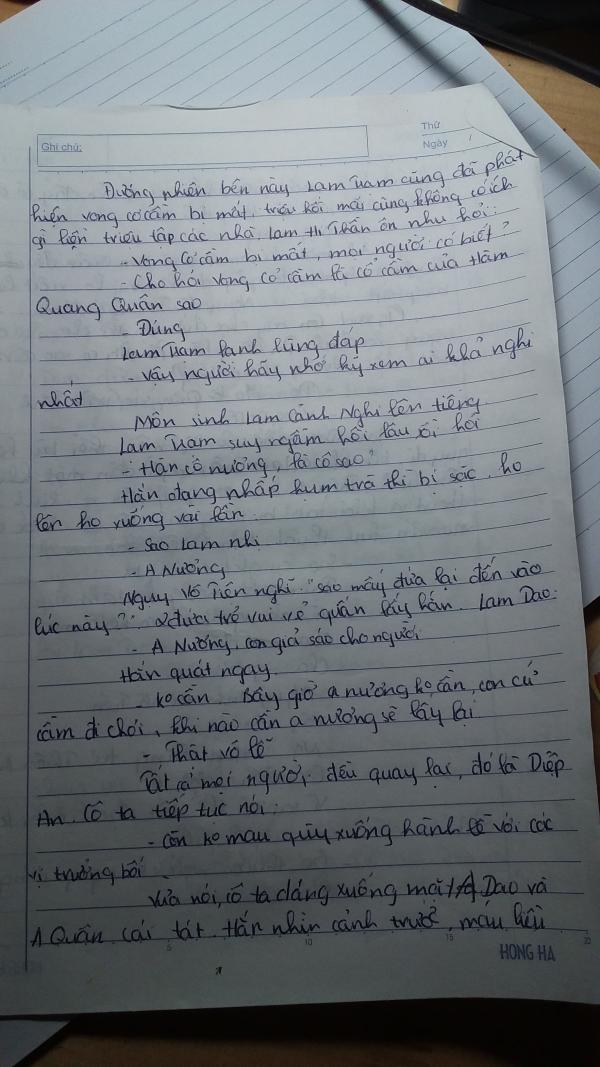 Ghi chú:
Thứ
Ngày
Đường nhiên bên này Lam Tuam cũng đã phát
hiện vong cơ cầm bị mất, triệu hồi mấy cũng không có ích
gì liền triệu tập các nhà. Lam thị Thần ôn nhu hỏi:
- Vong Cơ cầm bị mất, mọi người có biết?
- Cho hỏi vong cơ cầm là cổ cầm của Hàm
Quang Quân sao
- Đúng
Lam Tuam lạnh lùng đáp
- Vậy người hãy nhớ kỹ xem ai khả nghi
nhất
Môn sinh Lam Cảnh Nghi lên tiếng
Lam Tuam suy ngẫm hồi lâu rồi hỏi
- Hàn cô nương, là cô sao?
Hắn đang nhấp hụm trà thì bị sặc, ho
lên ho xuống vài lần.
- Sao Lam nhị
- A Nương
Nguỵ Vô Tiện nghĩ "sao mấy đứa lại đến vào
lúc này?". 2 đứa trẻ vui vẻ quấn lấy hắn. Lam Dao:
- A Nương, con giả sáo cho người
Hắn quát ngay.
- Ko cần. Bây giờ a nương ko cần, con cứ
cầm đi chơi, khi nào cần a nương sẽ lấy lại
- Thật vô lễ
Tất cả mọi người đều quay lại, đó là Diệp
An. Cô ta tiếp tục nói:
- Còn ko mau quỳ xuống hành lễ với các
vị trưởng bối
Vừa nói, cô ta dáng xuống mặt A Dao và
A Quân cái tát. Hắn nhìn cảnh trước, máu liều
5 10 15 20
HONG HA